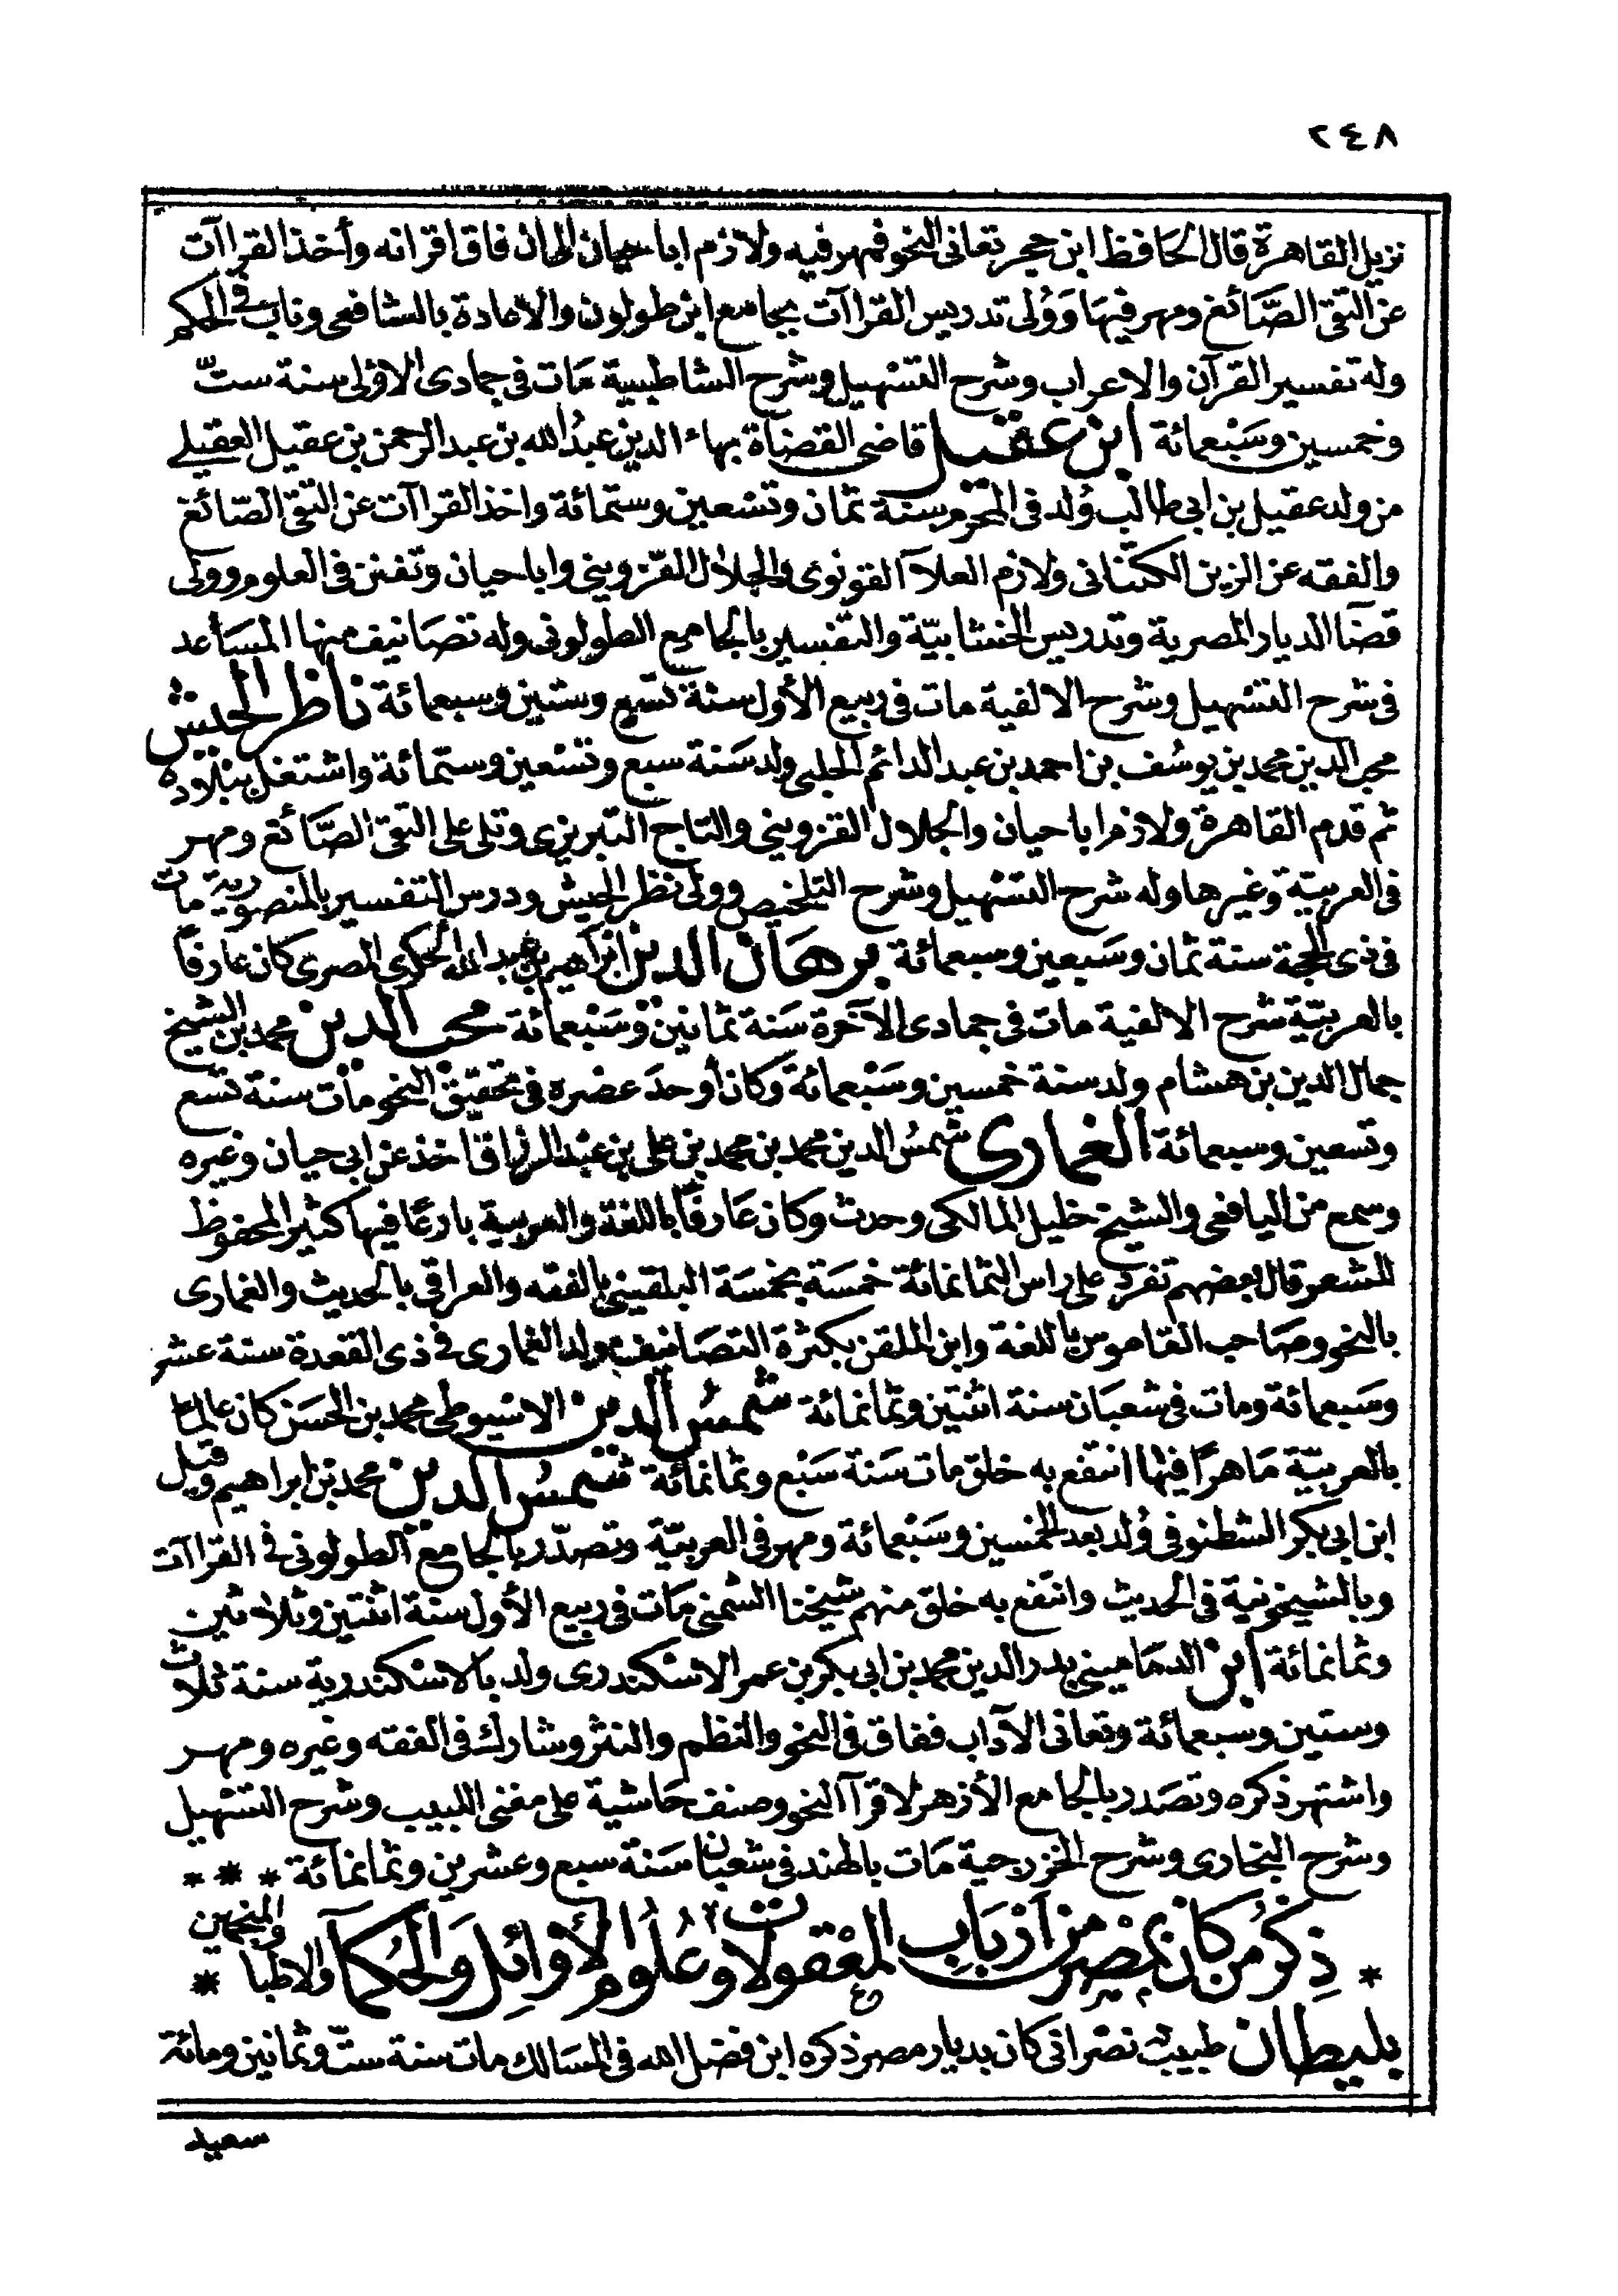 ٢٤٨
نزيل القاهرة قال الحافظ ابن حجر تعانى النحو فمهر فيه ولازم ابا حيان الى ان فاق اقرانه وأخذ القراآت
عن التقى الصَّائغ ومهر فيها وَوُلى تدريس القراآت بجامع ابن طولون والاعادة بالشافعى وناب فى الحكم
وله تفسير القرآن والاعراب وشرح التسْهيل وشرح الشاطبية مَات فى جمادى الاولى سنة ستّ
وخمسين وسَبْعمائة ابن عقيل قاضى القضاة بهاء الدين عبدُ الله بن عبد الرحمن بن عقيل العقيلى
من ولد عقيل بن ابى طالب وُلد فى المحرم سنة ثمان وتسْعين وستمائة واخذ القراآت عن التقى الصّائغ
والفقه عن الزين الكتنانى ولازم العلاآ القونوى والجلال القزوينى وابا حيان وتفنن فى العلوم وولى
قضآ الديار المصرية وتدريس الخشابيّة والتفسير بالجامع الطولونى وله تصَانيف منها المسَاعد
فى شرح التسْهيل وشرح الالفية مات فى ربيع الأول سنة تسْع وستين وسبعمائة ناظر الجيش
محب الدين محمد بن يوسُف بن احمد بن عبد الدائم الحلبى ولد سَنة سبع وتسْعين وستمائة واشتغل ببلاده
ثم قدم القاهرة ولازم ابا حيان والجلال القزوينى والتاج التبريزى وتلى على التقى الصَّائغ ومهر
فى العربيّة وغيرها وله شرح التسْهيل وشرح التلخيص وولى نظر الجيش ودرس التفسير بالمنصورية مات
فى ذى الحجة سنة ثمان وسَبعين وسبعمائة برهان الدين ابرآهيم بن عبد الله الحكرى المصرى كان عارفًا
بالعربيّة شرح الالفية مات فى جمادى الآخرة سَنة ثمانين وسَبْعمائة محب الدين محمد بن الشيخ
جمال الدين بن هشام ولد سنة خمسين وسَبْعمائة وكان أوحدَ عصْره فى تحقيق النحو مات سنة تسْع
وتسعين وسبعمائة الغمارى شمسُ الدين محمد بن محمد بن على بن عبْد الرزاق اخذ عن ابى حيان وغيره
وسمع من اليافعى والشيخ خليل المالكى وحدث وكان عَارفًا باللغة والعربية بارعًا فيها كثير المحفوظ
للشعر قال بعضهم تفرد على راس الثمانمائة خمسَة بخمسَة البلقينى بالفقه والعراقى بالحديث والغمارى
بالنحو وصَاحب القاموس باللغة وابن الملقن بكثرة التصَانيف ولد الغمارى فى ذى القعدة سنة عشر
وسَبعمائة ومات فى شعبَان سنة اثنتين وثمانمائة شمسُ الدين الاسْيوطى محمد بن الحسَن كان عالما
بالعربيّة مَاهرًا فيها انتفع به خلق مات سَنة سَبْع وثمانمائة شمسُ الدين محمد بن ابراهيم وقيل
ابن ابى بكر الشطنوفى وُلد بعد الخمسين وسَبْعمائة ومهر فى العربيّة وتصدّر بالجامع الطولونى فى القراآت
وبالشيخونية فى الحديث وانتفع به خلق منهم شيخنا الشمنى مَات فى ربيع الأول سنة اثنتين وثلاثين
وثمانمائة ابن الدمَامينى بدر الدين محمد بن ابى بكر بن عمر الاسْكندرى ولد بالاسْكندرية سنة ثلاث
وستين وسبعمائة وتعانى الآداب ففاق فى النحو والنظم والنثر وشارك فى الفقه وغيره ومهر
واشتهر ذكره وتصَدر بالجامع الأزهر لاقرآ النحو وصنف حَاشية على مغنى اللبيب وشرح التسْهيل
وشرح البخارى وشرح الخزرجية مَات بالهند فى شعبان سَنة سبع وعشرين وثمانمائة * * *
* ذِكْرُ من كان بمِصْر من أرْبَابِ المعْقولات وعُلوم الأوَائِل وَالحُكمآ والاطبا والمنجمين *
بليطان طبيب نصْرانى كان بديار مصر ذكره ابن فضل الله فى المسَالك مات سنة ستّ وثمانين ومائة
سعيد